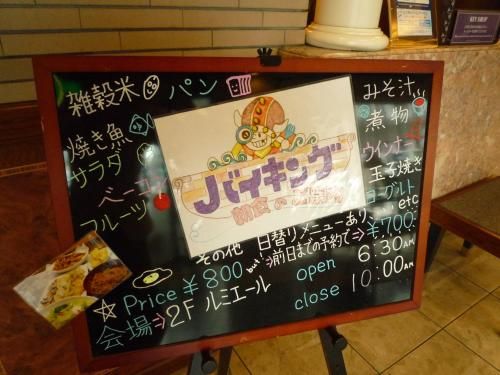 雑穀米 パン
焼き魚
サラダ
ベーコン
フルーツ
バイキング
朝食の
みそ汁
煮物
ウインナー
玉子焼き
ヨーグルト
etc
その他 日替りメニューあり
Price ¥800 but! ⇒前日までの予約で⇒¥700!
会場⇒2F ルミエール
open 6:30AM
close 10:00AM
KEY SHOP